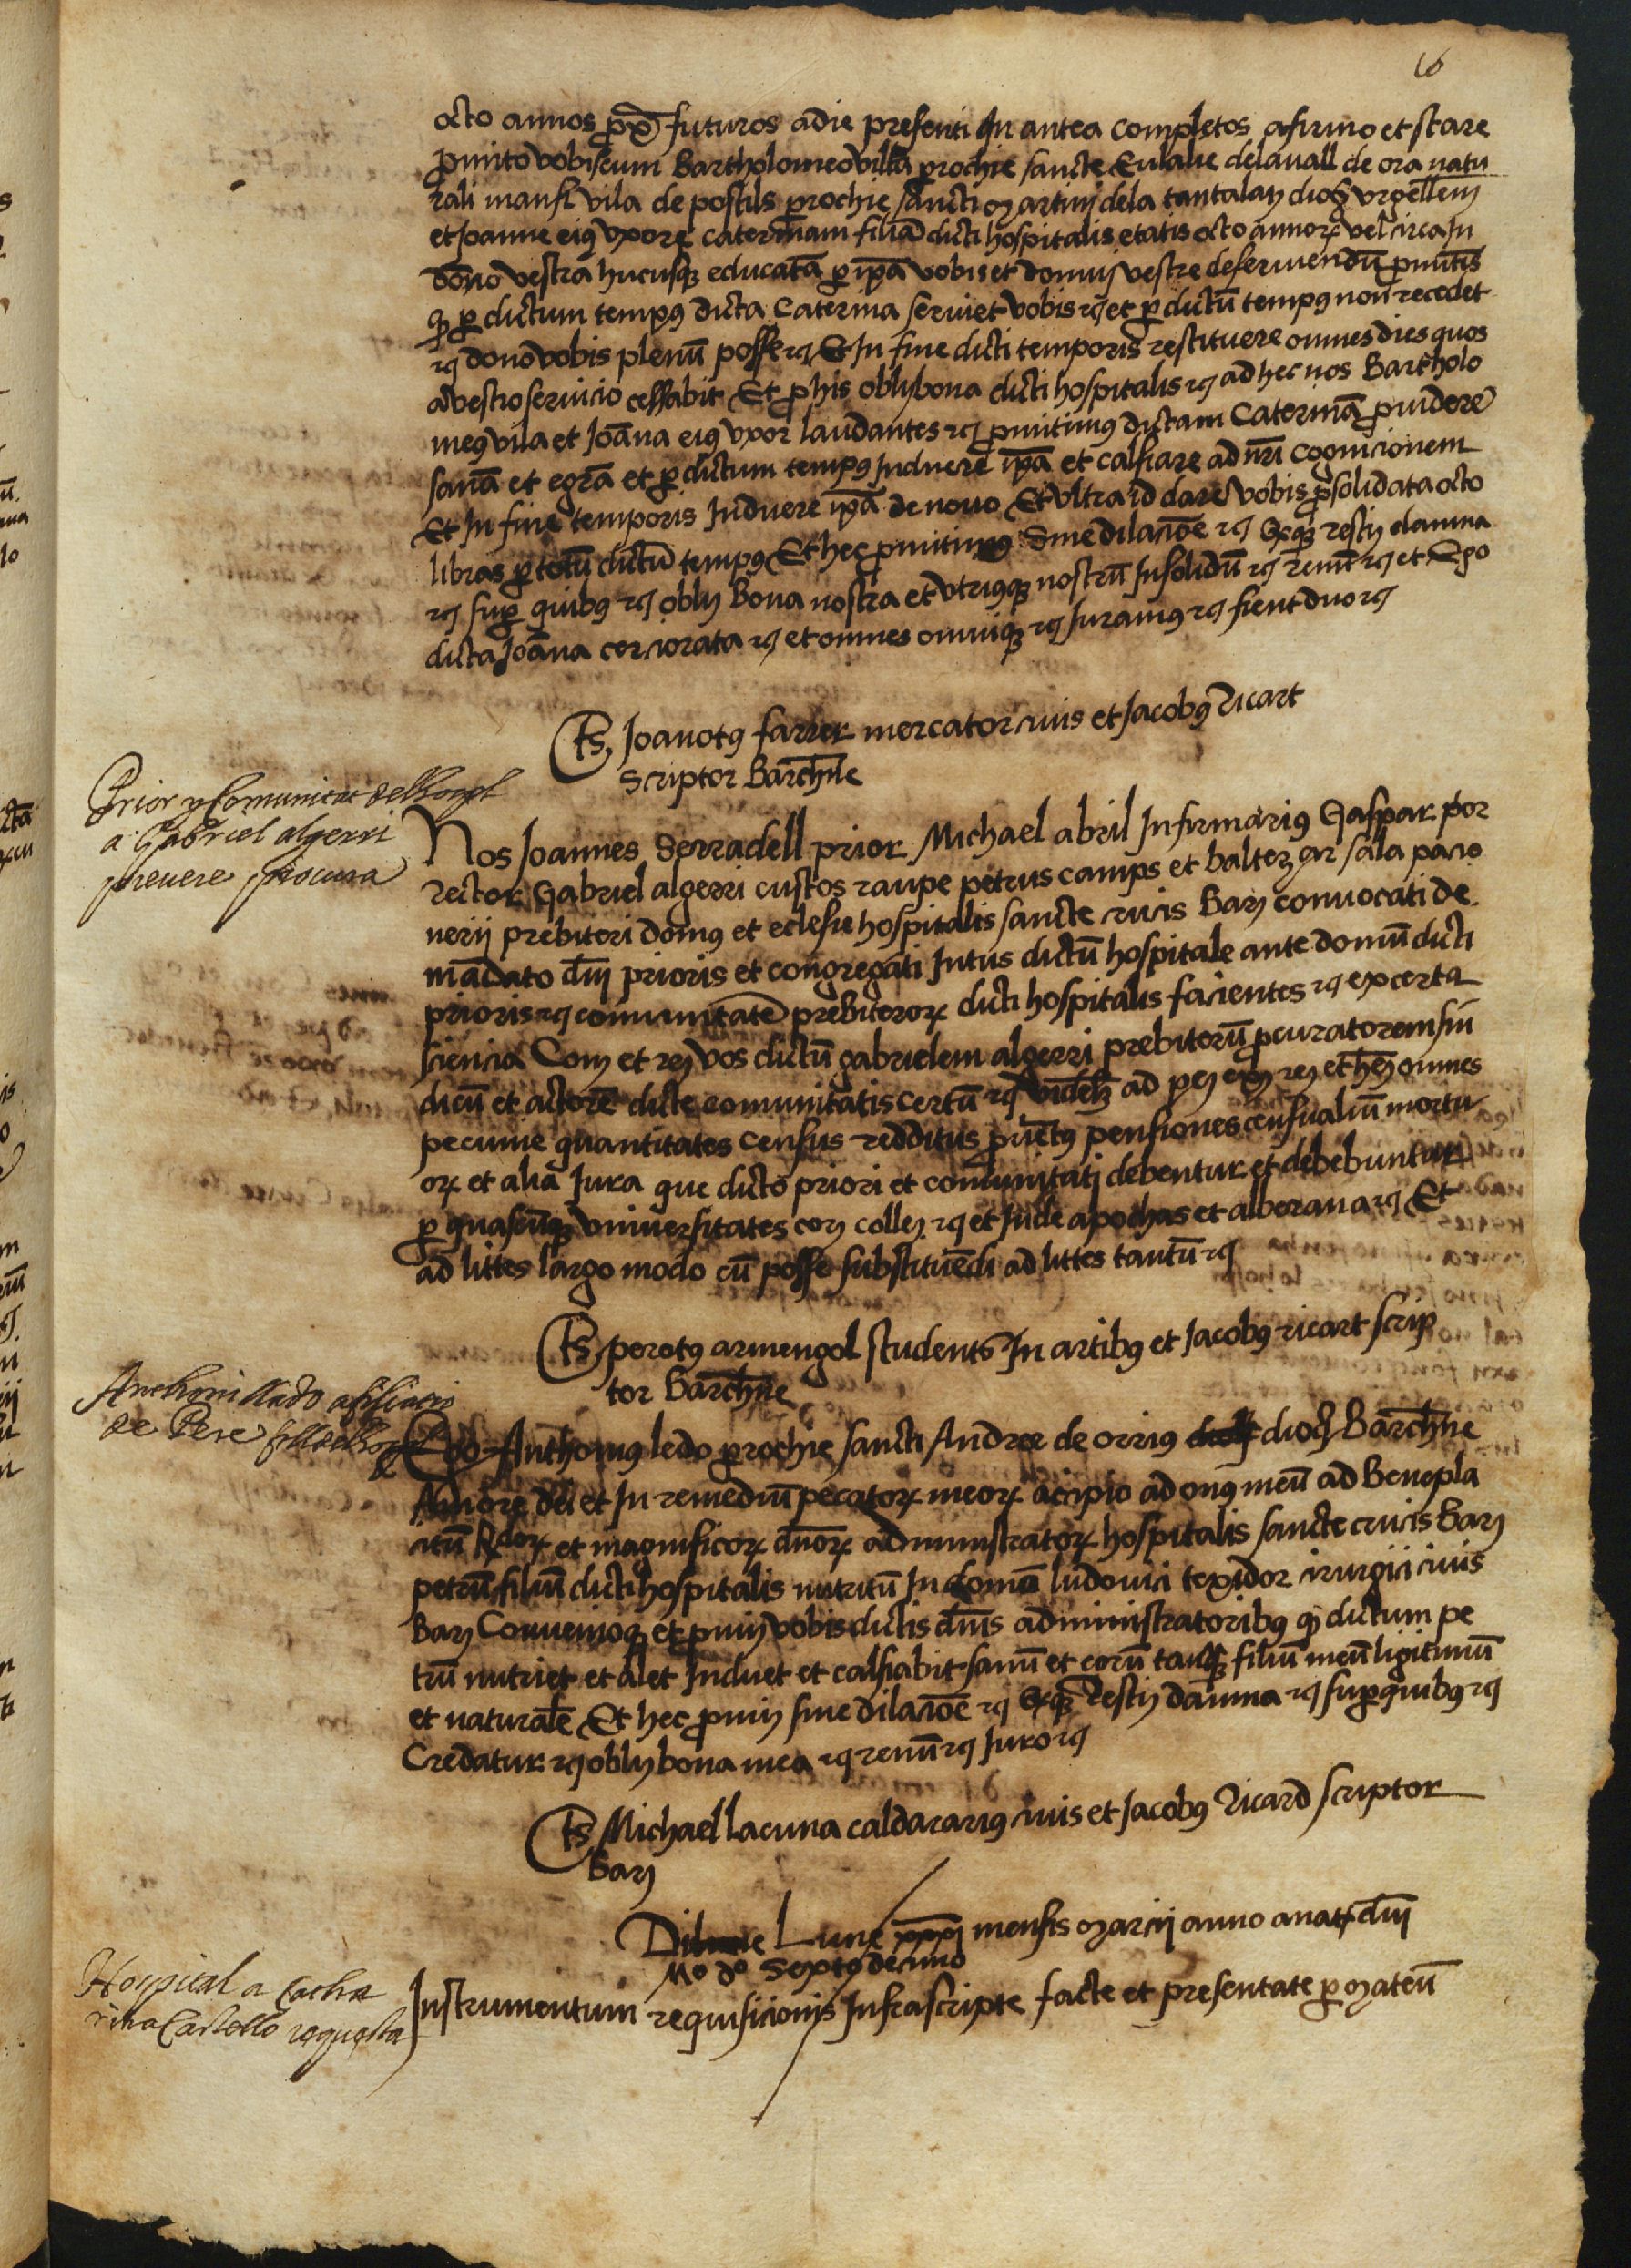 16
octo annos px̄ futuros adie presenti In antea completos afirmo et stare
pmito vobiscum Bartholomeo villa prochie sancte Eulalie delavall de ora natu
rali mansi vila de postils prochie sancti martini dela tantalay dioc urgellen
et Joanne eiꝰ uxore caterinam filiā dicti hospitalis etatis octo annorꝝ vel circa In
domo vestra hucusqꝫ educatā p ipā vobis et domuj vestre deserviendū pmitēs
qꝫ p dictum tempꝰ dicta Caterina serviet vobis rꝫ et p dictū tempꝰ non recedet
rꝫ dono vobis plenū posse rꝫ Et In fine dicti temporis restituere omnes dies quos
a vestro servicio cessabit Et p his obly bona dicti hospitalis rꝫ ad hec nos Bartholo
meꝰ vila et Joāna eiꝰ uxor laudantes rꝫ pmitimꝰ dictam Caterinā pvidere
sanā et egrā et p dictum tempꝰ Induere ipā et calsiare ad nr̄i cognicionem
Et In fine temporis Induere ipā de novo Et ultra id dare vobis p solidata octo
libras p totū dictū tempꝰ Et hec pmitimꝰ sine dilacioē rꝫ Exqꝫ resty damna
rꝫ sup quibꝰ rꝫ obly Bona nostra et utriusqꝫ nostrū Insolidū rꝫ renūt rꝫ et Ego
dicta Joāna cerciorata rꝫ et omnes omniqꝫ rꝫ Juramꝰ rꝫ fient duo rꝫ
Ts Joanotꝰ farrer mercator civis et Jacobꝰ Ricart
scriptor Barchn̄e
Prior y Comunitat del hospl
a Gabriel algerri
prevere procura
Nos Joannes Serradell prior Michael abril Infirmariꝰ Gaspar por
rector Gabriel algerri custos raupe petrus camps et baltezar sala pavo
nerij prebiteri domꝰ et eclesie hospitalis sancte crucis Bar convocati de
mādato dn̄j prioris et congregati Intus dictū hospitale ante domū dicti
prioris rꝫ comunitatē prebiterorꝝ dicti hospitalis facientes rꝫ ex certa
sciencia Com et rey vos dictū gabrielem algerri prebiterū pcuratorem sin
dicū et actorē dicte comunitatis certū rꝫ videlꝫ ad pey exy rey et hey omnes
pecunie quantitates census redditus pvētꝰ pensiones censualiū mortu
orꝝ et alia Jura que dicto priori et comunitatj debentur et debebuntur
p quascūqꝫ universitates cory colley rꝫ et Inde apochas et alberana rꝫ Et
ad littes largo modo cū posse substituēdi ad littes tantū rꝫ
Ts perotꝰ armengol students In artibꝰ et Jacobꝰ ricart scrip
tor Barchn̄e
Anthoni lledo afiliacio
de Pere fill del hospl
Ego Anthoniꝰ ledo prochie sancti Andree de orrius dioc Barchn̄e
Amore dei et In remediū pecatorꝝ meorꝝ accipio ad onꝰ meū ad Benepla
citū Rdorꝝ et magnificorꝝ dn̄orꝝ administratorꝝ hospitalis sancte crucis Bar
petrū filiū dicti hospitalis nutritū In domo ludovici texidor cirurgici civis
Bar Convenioqꝫ et pmity vobis dictis dn̄is administratoribꝰ qꝫ dictum pe
trū nutriet et alet Induet et calsiabit sanū et egrū tanqꝫ filiū meū ligitimū
et naturalē Et hec pmity sine dilacioē rꝫ Exqꝫ Resty damna rꝫ sup quibꝰ rꝫ
Credatur rꝫ obly bona mea rꝫ renū rꝫ Juro rꝫ
Ts Michael Lacuna caldarariꝰ civis et Jacobꝰ Ricard scriptor
Bar
Die Lune xxxj mensis marcij anno a nat dn̄j
Mº dº septodecimo
Hospital a Catha
rina Castello requesta
Instrumentum requisicionis Infrascripte facte et presentate p mateū